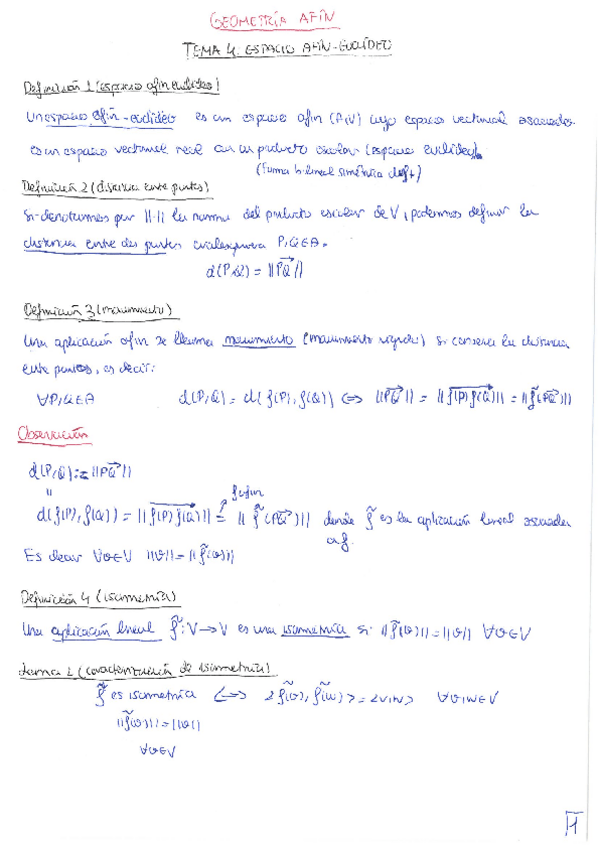 GEOMETRÍA AFÍN
TEMA 4. ESPACIO AFÍN-EUCLÍDEO
Definición 1 (espacio afín euclídeo)
Un espacio afín-euclídeo es un espacio afín (A,V) cuyo espacio vectorial asociado
es un espacio vectorial real con un producto escalar (espacio euclídeo)
(forma bilineal simétrica def +)
Definición 2 (distancia entre puntos)
Si denotamos por ||·|| la norma del producto escalar de V, podemos definir la
distancia entre dos puntos cualesquiera P,Q∈A.
d(P,Q) = ||PQ→||
Definición 3 (movimiento)
Una aplicación afín se llama movimiento (movimiento rígido) si conserva la distancia
entre puntos, es decir:
∀P,Q∈A d(P,Q) = d(f(P), f(Q)) ⟺ ||PQ→|| = ||f(P)f(Q)→|| = ||f̃(PQ→)||
Observación
d(P,Q) := ||PQ→||
|| f afín
d(f(P), f(Q)) = ||f(P)f(Q)→|| = ||f̃(PQ→)|| donde f̃ es la aplicación lineal asociada
a f.
Es decir ∀v∈V ||v|| = ||f̃(v)||
Definición 4 (isometría)
Una aplicación lineal f̃: V→V es una isometría si ||f̃(v)|| = ||v|| ∀v∈V
Lema 1 (caracterización de isometría)
f̃ es isometría ⟺ <f̃(v), f̃(w)> = <v,w> ∀v,w∈V
||f̃(v)|| = ||v||
∀v∈V
1